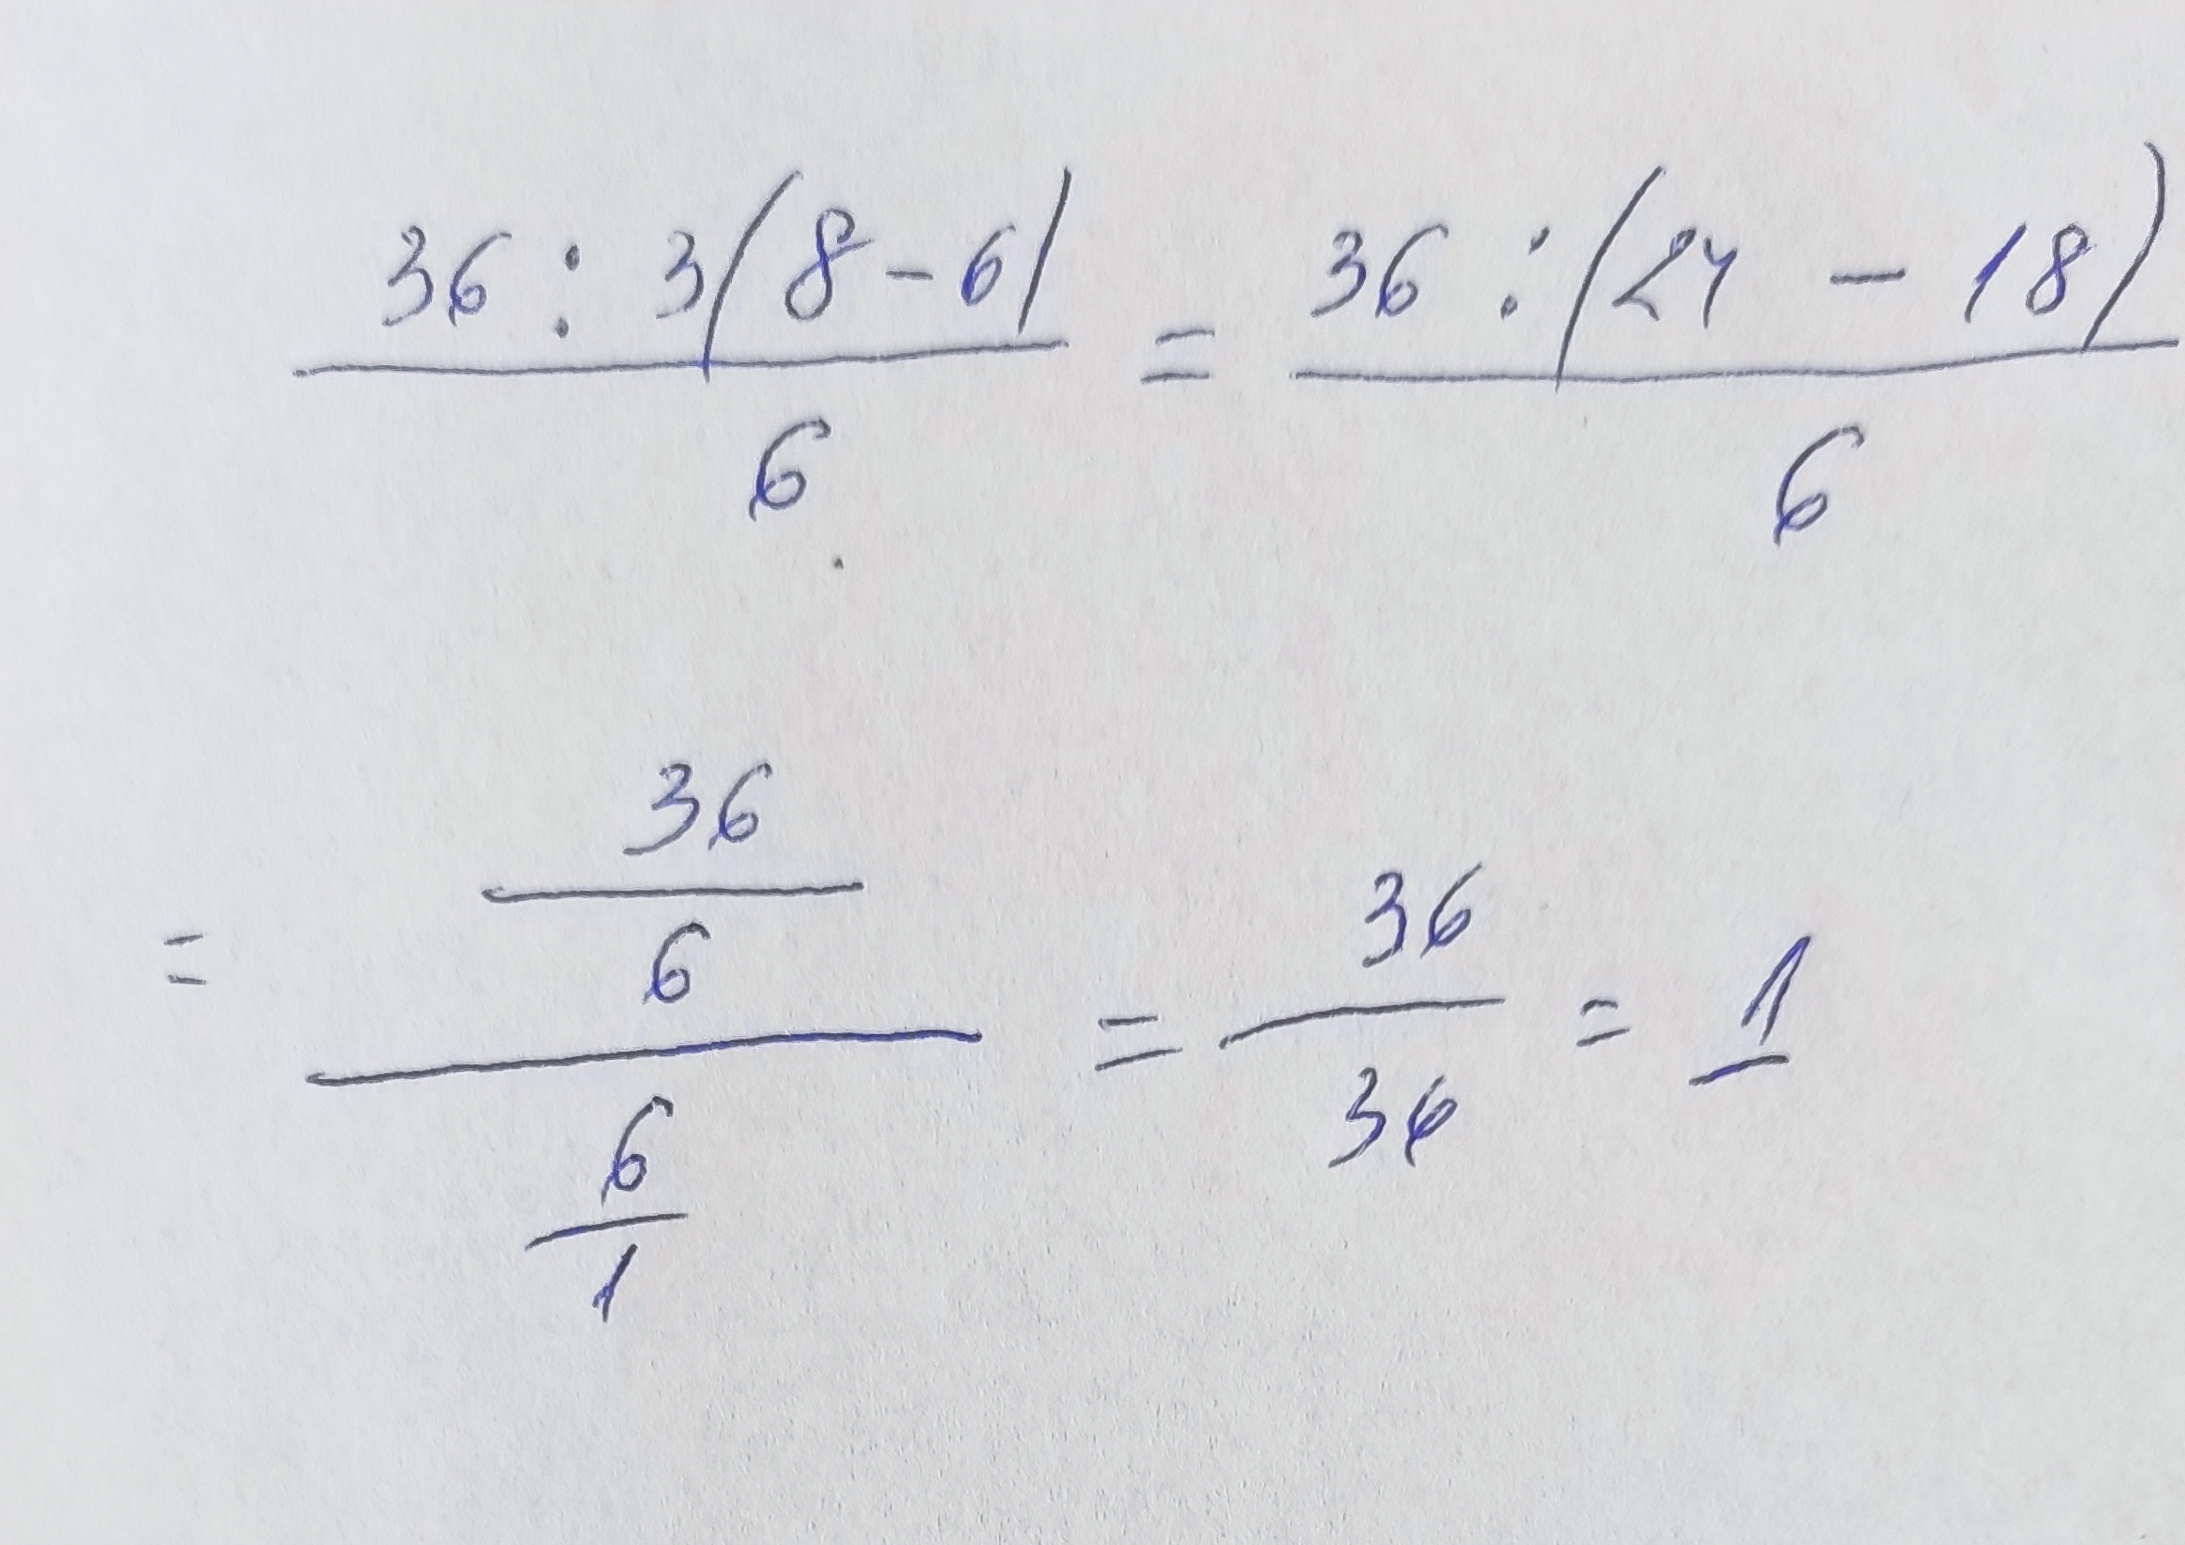 36 : 3(8-6) = 36 : (24 - 18)
6 6
36
6 = 36 = 1
= 6 36
1